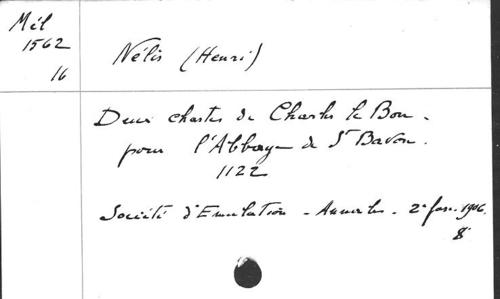 Mél
1562
16
Nélis (Henri)
Deux chartes de Charles le Bon.
pour l'Abbaye de St Bavon.
1122
Société d'Emulation - Annales. 2e fasc. 1906.
8°